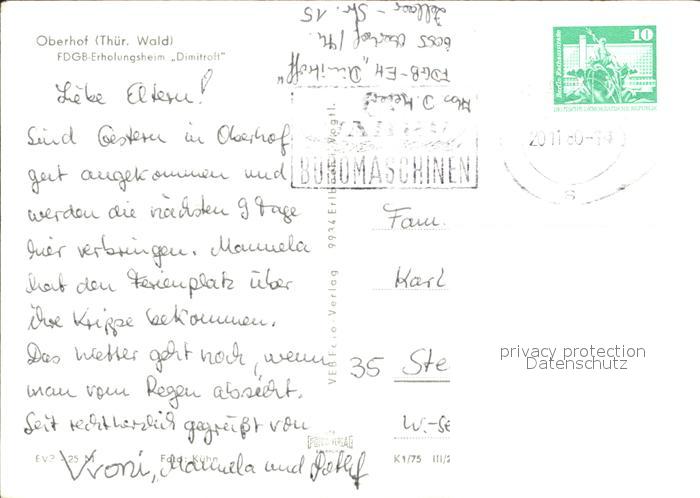 Oberhof (Thür. Wald)
FDGB-Erholungsheim „Dimitroff"
Liebe Eltern!
Sind Gestern in Oberhof
gut angekommen und
werden die nächsten 9 Tage
hier verbringen. Manuela
hat den Ferienplatz über
ihre Krippe bekommen.
Das Wetter geht noch, wenn
man vom Regen absieht.
Seit recht herzlich gegrüßt von
Vroni, Manuela und Detlef
Foto: Kühn
FDGB-EH „Dimitroff"
6055 Oberhof/Th.
Zellaer-Str. 15
VEB Foto-Verlag 9934 Erlbach Vogtl.
FOTO-VERLAG
K 1/75 III/2
BÜROMASCHINEN
20 11 80
s
10
Berlin, Rathausstraße
DEUTSCHE DEMOKRATISCHE REPUBLIK
Fam.
Karl
35 Ste
W.-Se
privacy protection
Datenschutz